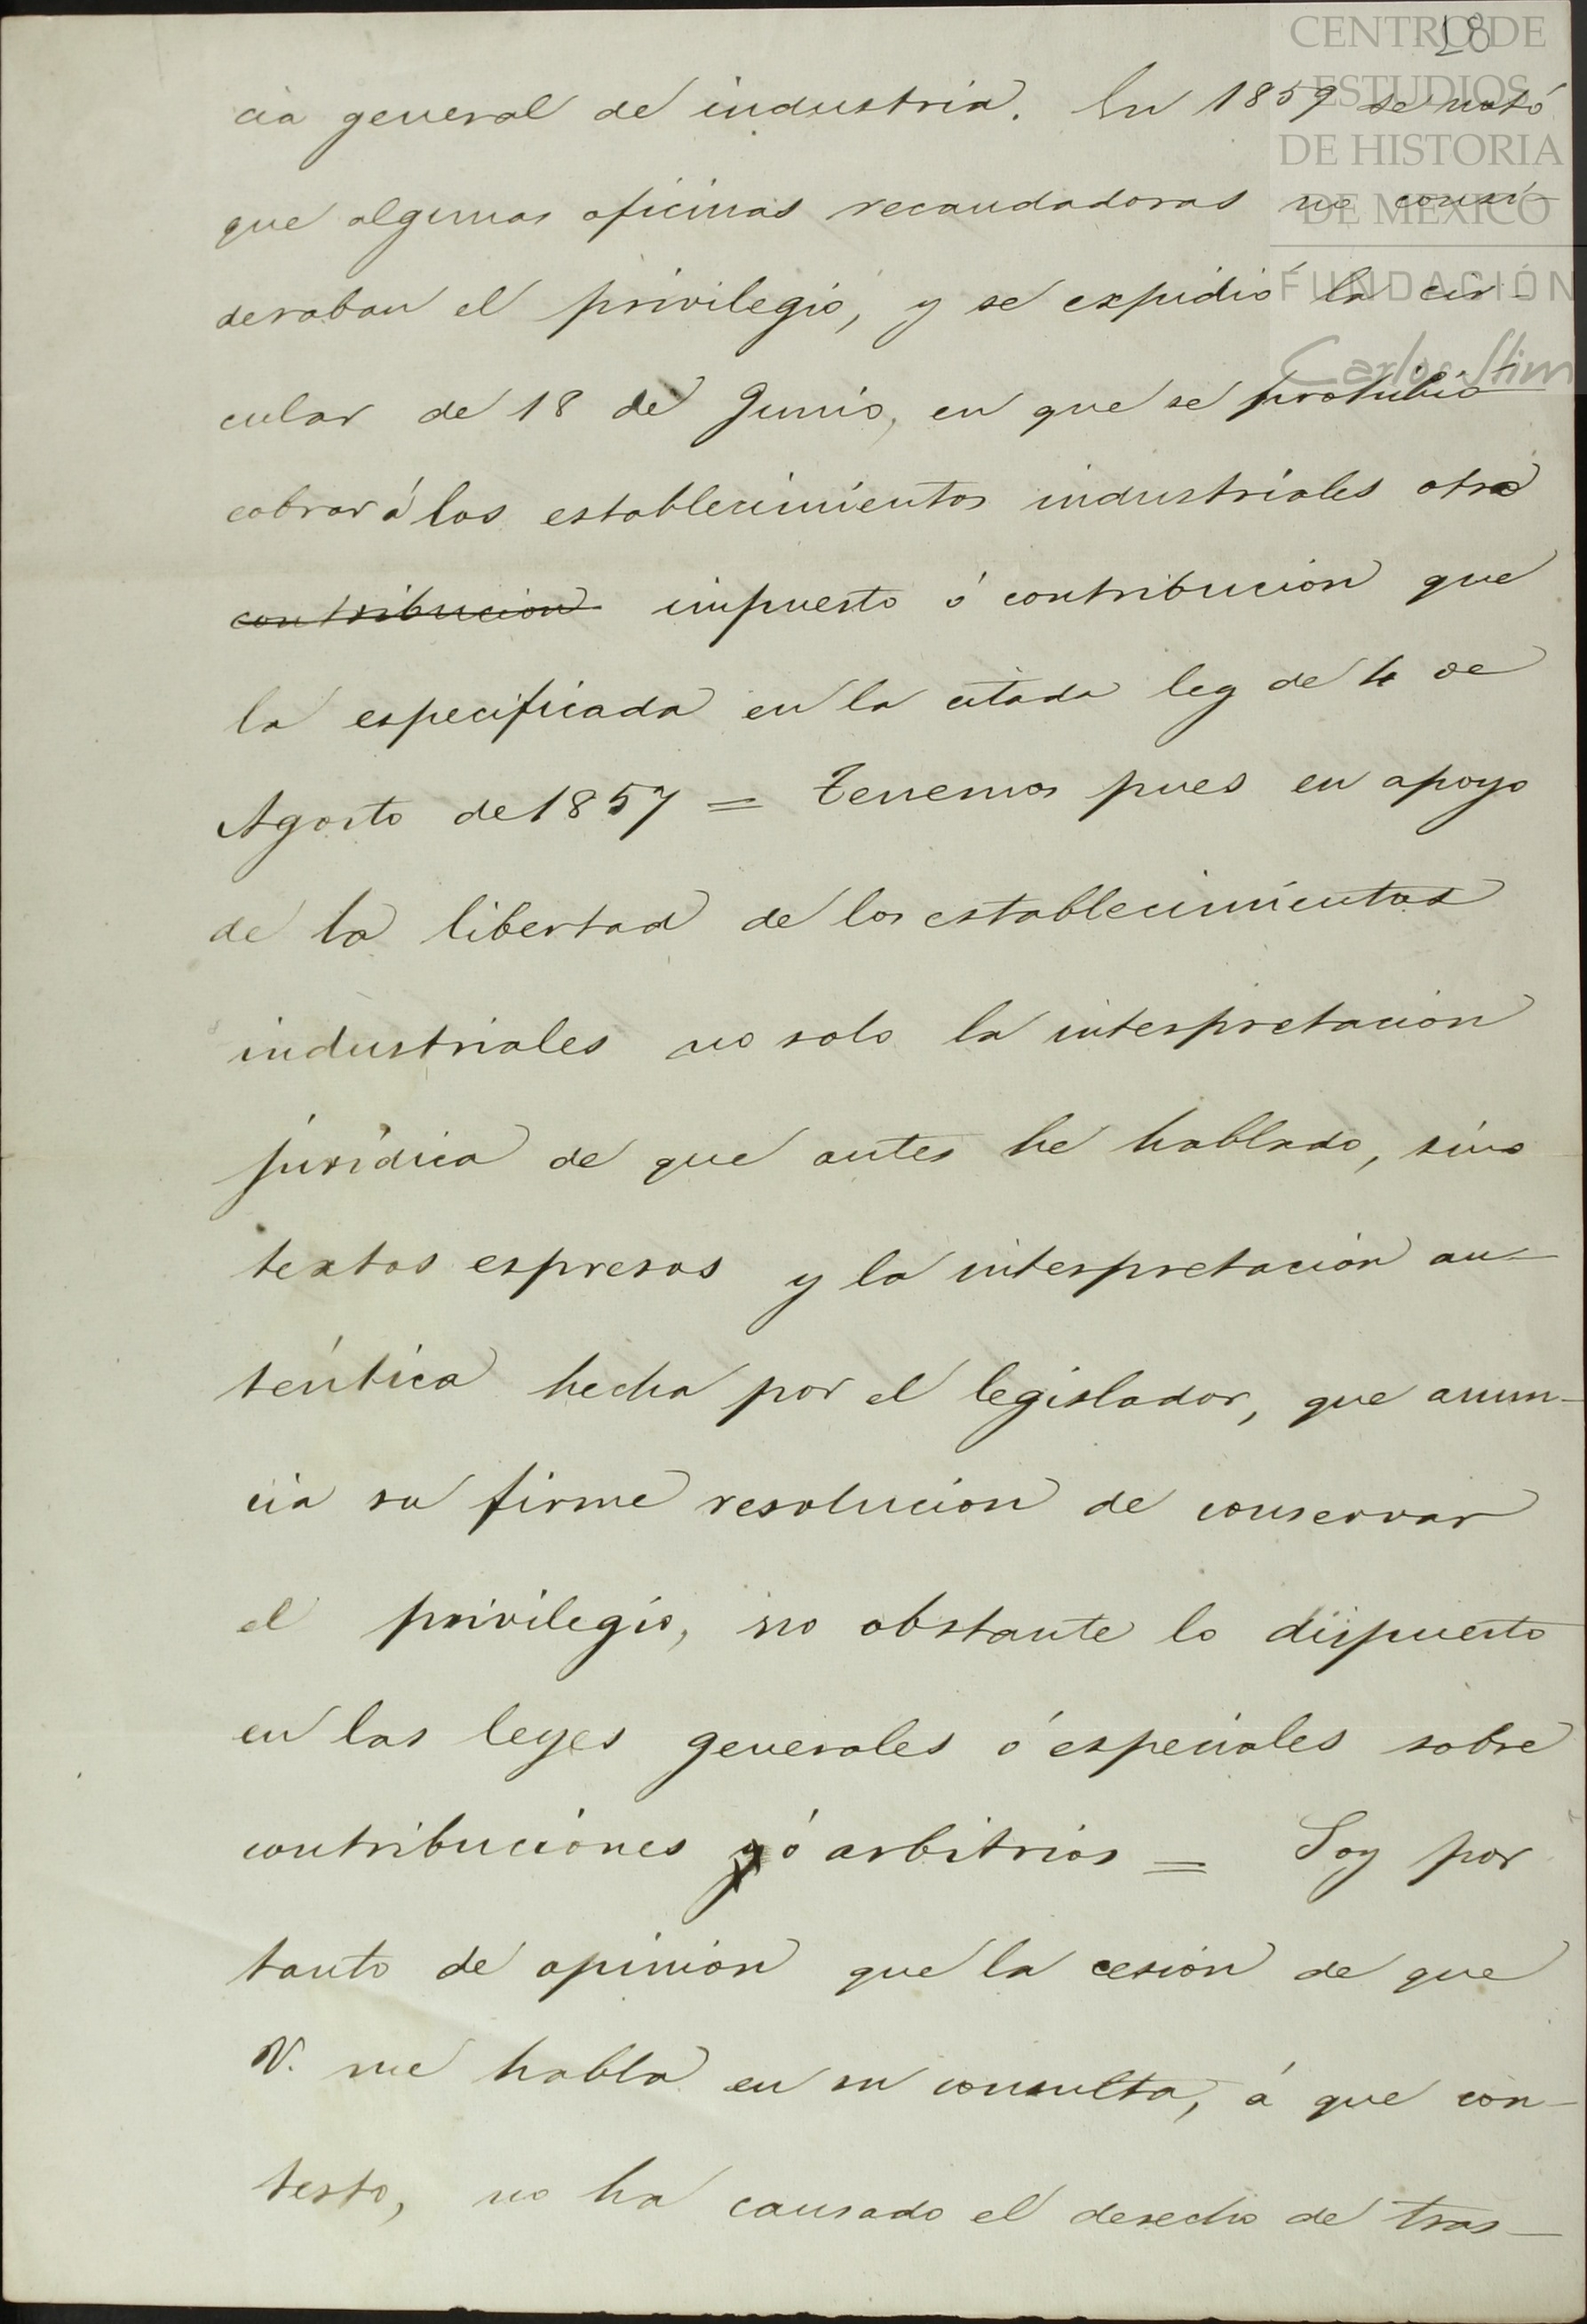 28
CENTRO DE
ESTUDIOS
DE HISTORIA
DE MÉXICO
FUNDACIÓN
Carlos Slim
cia general de industria. En 1859 se notó
que algunas oficinas recaudadoras no consi-
deraban el privilegio, y se expidió la cir-
cular de 18 de Junio, en que se prohibió
cobrar á los establecimientos industriales otra
contribucion impuesto ó contribucion que
la especificada en la citada ley de 4 de
Agosto de 1857 = Tenemos pues en apoyo
de la libertad de los establecimientos
industriales no solo la interpretacion
jurídica de que antes he hablado, sino
textos espresos y la interpretacion au-
téntica hecha por el legislador, que anun-
cia su firme resolucion de conservar
el privilegio, no obstante lo dispuesto
en las leyes generales ó especiales sobre
contribuciones y ó arbitrios = Soy por
tanto de opinion que la cesion de que
V. me habla en su consulta, á que con-
testo, no ha causado el derecho de tras-